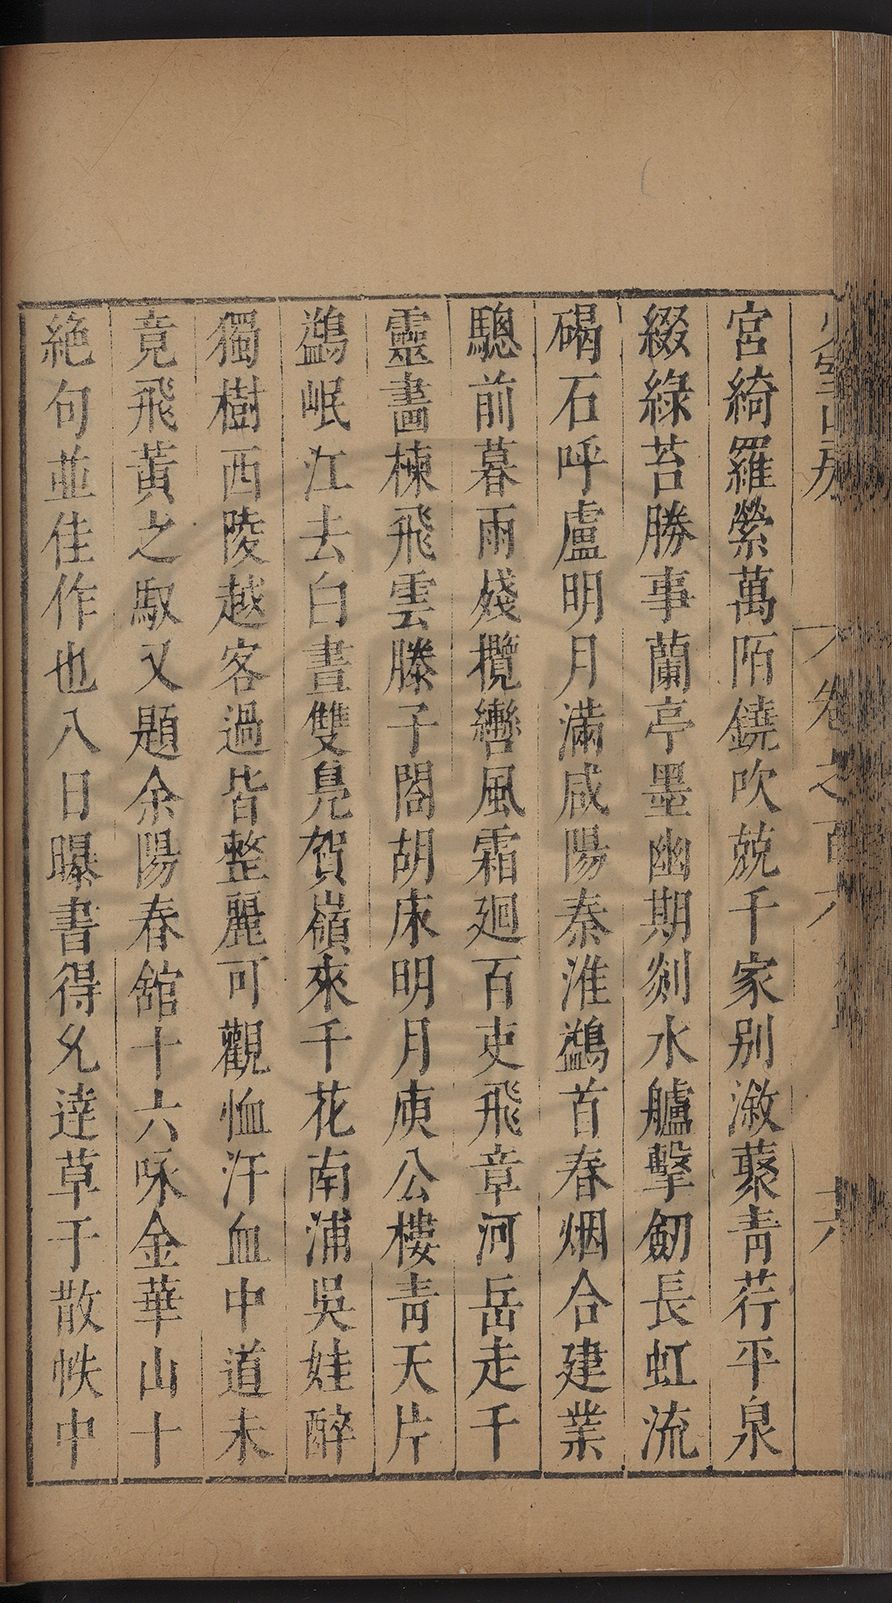 宮綺羅縈萬陌鐃吹兢千家别潊藂青荇平泉
綴綠苔勝事蘭亭墨幽期剡水艫擊劒長虹流
碣石呼盧明月滿咸陽秦淮鷁首春烟合建業
驄前暮雨殘攬轡風霜廻百吏飛章河岳走千
靈畫棟飛雲滕子閣胡床明月庾公樓青天片
鷁岷江去白晝雙鳧賀嶺來千花南浦吳娃醉
獨樹西陵越客過皆整麗可觀恤汗血中道未
竟飛黃之馭又題余陽春舘十六咏金華山十
絶句並佳作也八日曝書得乆逹草于散帙中
少室山房
卷之百六
六